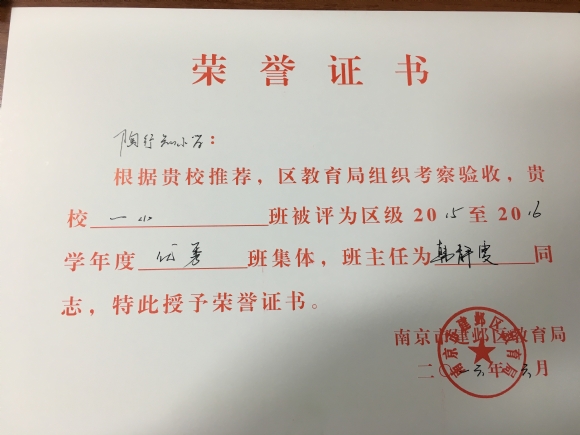 荣誉证书
陶行知小学：
根据贵校推荐，区教育局组织考察验收，贵
校一小班被评为区级2015至2016
学年度优秀班集体，班主任为韩静雯同
志，特此授予荣誉证书。
南京市建邺区教育局
二〇一六年六月
南京市建邺区教育局